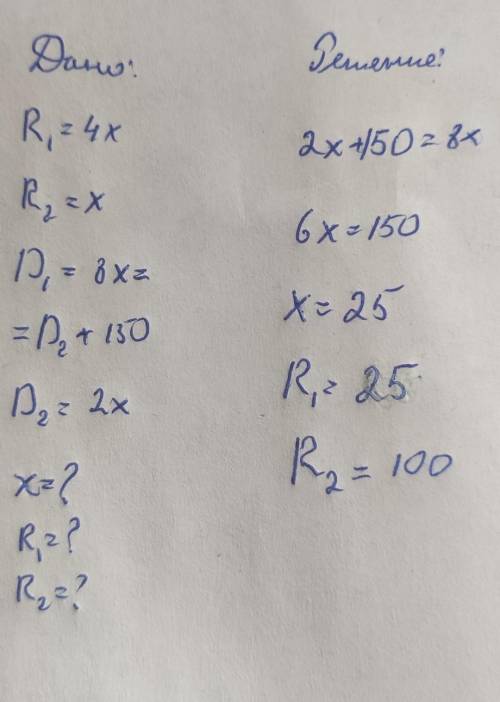 Дано:
R₁ = 4x
R₂ = x
D₁ = 8x =
= D₂ + 150
D₂ = 2x
x = ?
R₁ = ?
R₂ = ?
Решение:
2x + 150 = 8x
6x = 150
x = 25
R₁ = 25
R₂ = 100